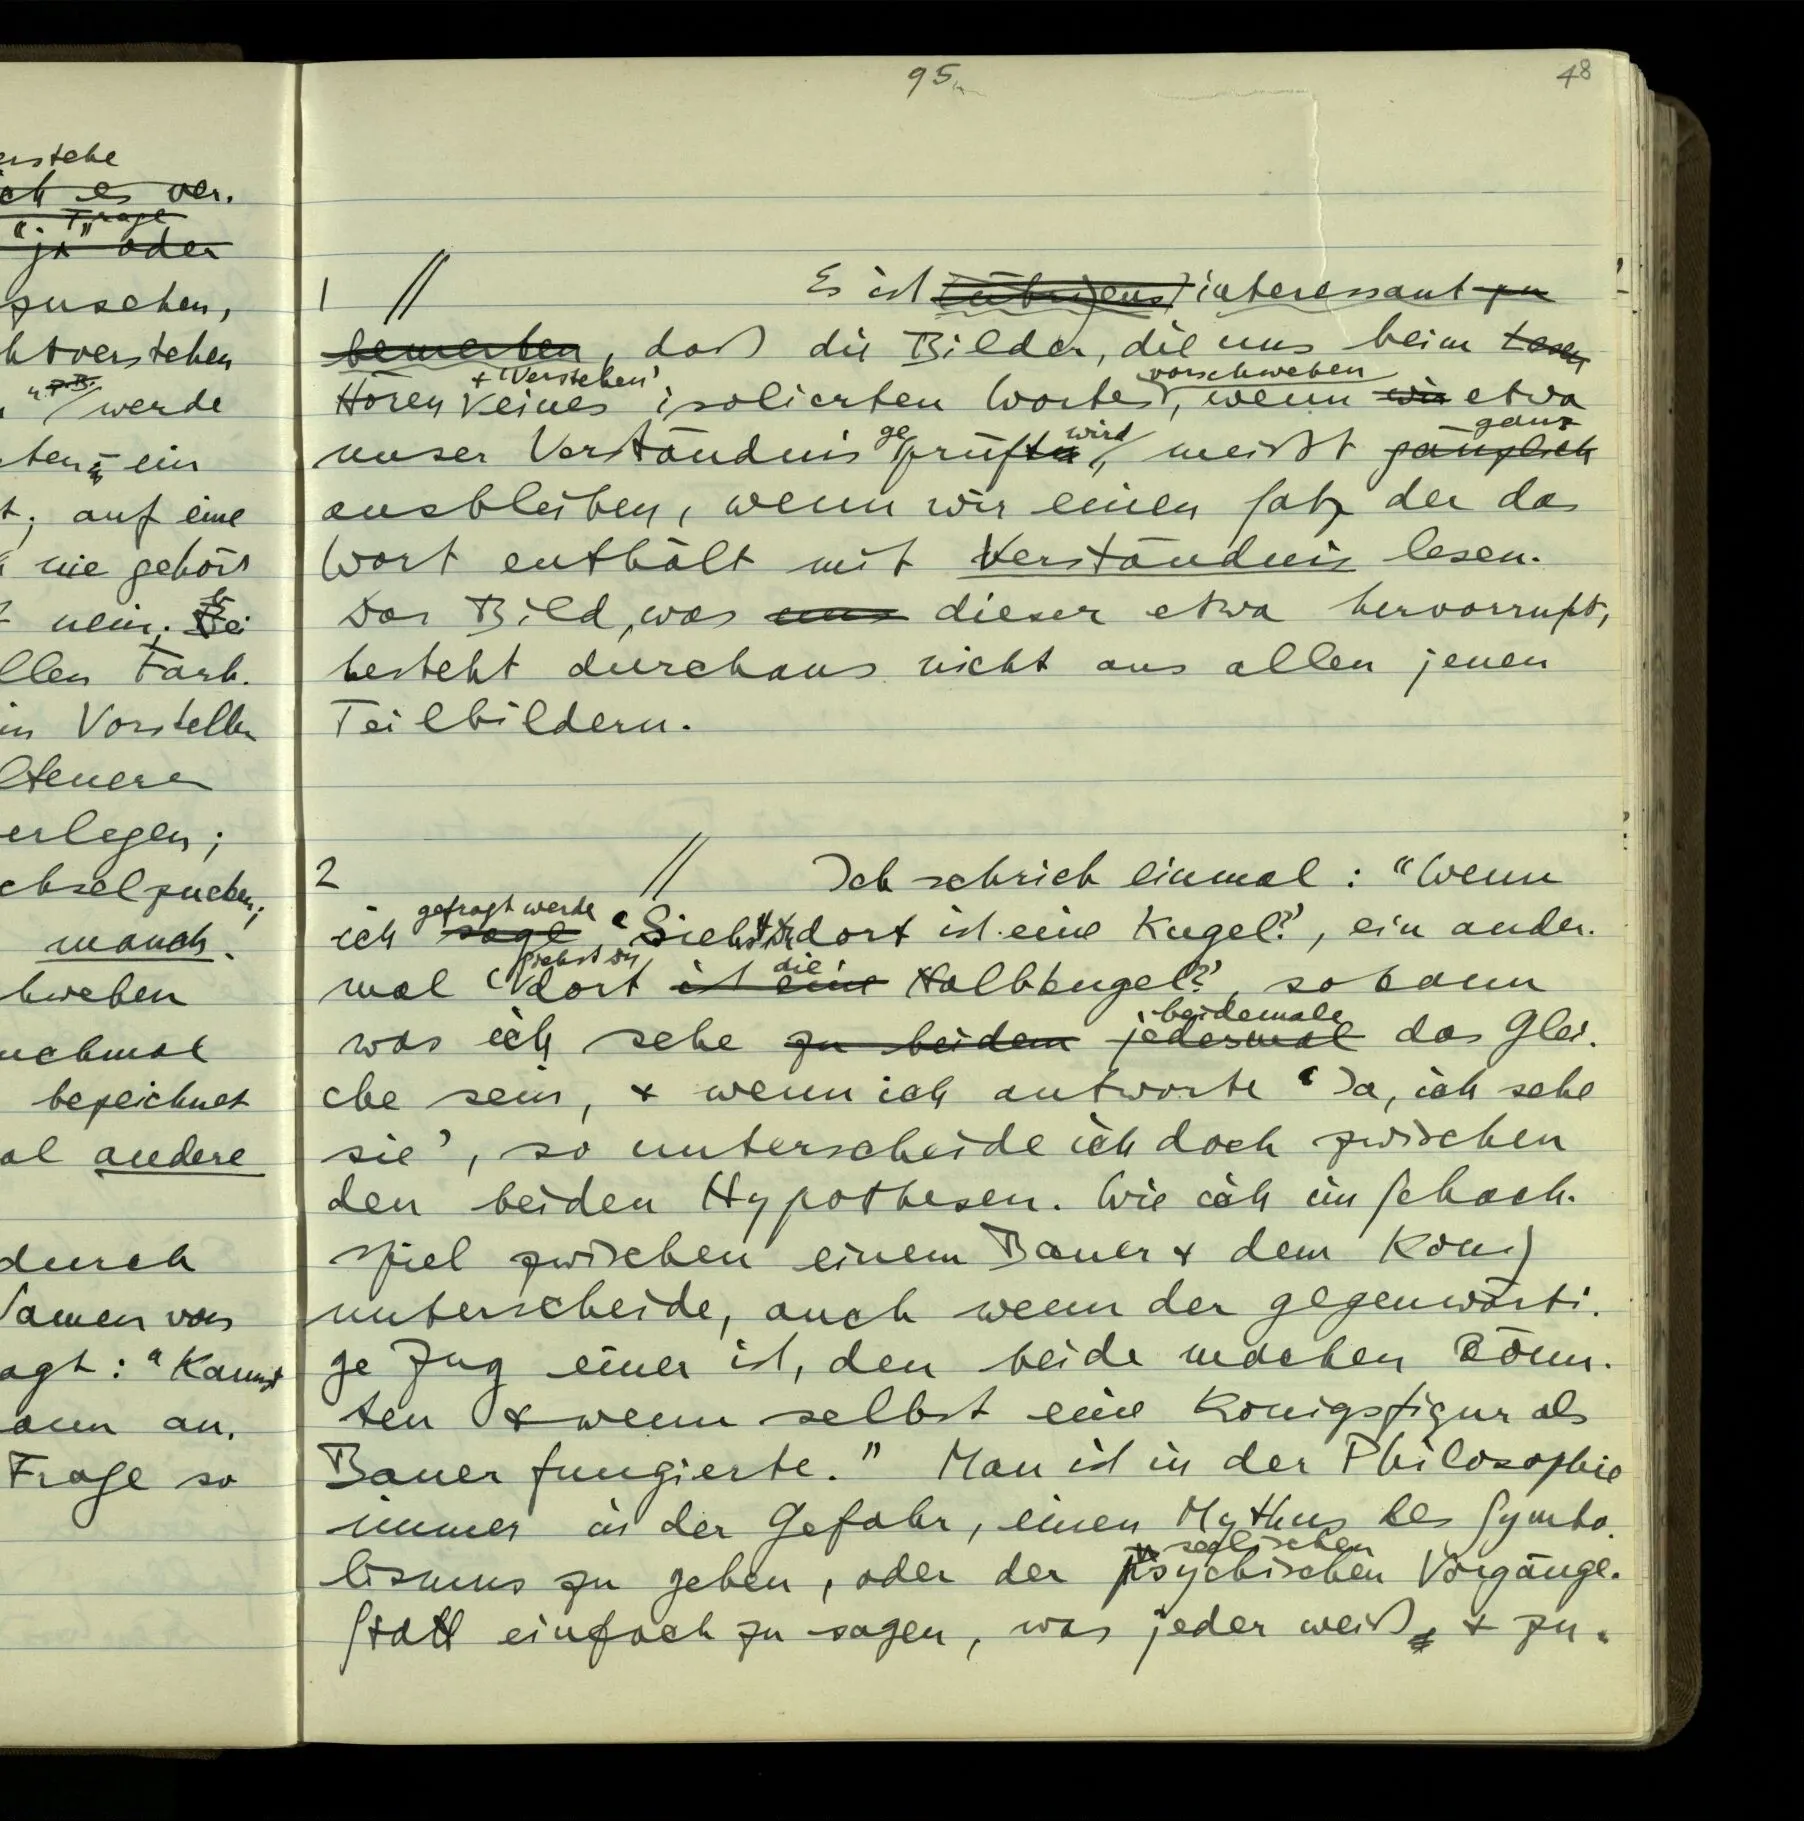 erstehe
ich es ver.
Frage
"ja" oder
zusehen,
htverstehen
z.B.
werde
ten ein
t; auf eine
nie gehört
nein. Bei
llen Farb.
in Vorstellu
lteuere
erlegen;
chselzucken;
manch.
hweben
nchmal
bezeichnet
al andere
durch
Namen von
agt: "Kannst
ann an.
Frage so
95
48
1 // Es ist übrigens interessant zu
bemerken, daß die Bilder, die uns beim Lesen
+ 'Verstehen' vorschweben
Hören eines isolierten Wortes, wenn wir etwa
ge wird ganz
unser Verständnis prüften, meißt gänzlich
ausbleiben, wenn wir einen Satz der das
Wort enthält mit Verständnis lesen.
Das Bild, was uns dieser etwa hervorruft,
besteht durchaus nicht aus allen jenen
Teilbildern.
2 // Ich schrieb einmal: "Wenn
gefragt werde
ich sage 'Siehst Du dort ist eine Kugel?', ein ander.
siehst Du die
mal 'dort ist eine Halbkugel?', so kann
beidemale
was ich sehe zu beiden jedesmal das Glei.
che sein, + wenn ich antworte 'Ja, ich sehe
sie', so unterscheide ich doch zwischen
den beiden Hypothesen. Wie ich im Schach.
spiel zwischen einem Bauer + dem König
unterscheide, auch wenn der gegenwärti.
ge Zug einer ist, den beide machen könn.
ten + wenn selbst eine Königsfigur als
Bauer fungierte." Man ist in der Philosophie
immer in der Gefahr, einen Mythus des Symbo.
seelischen
lismus zu geben, oder der psychischen Vorgänge.
Statt einfach zu sagen, was jeder weiß, + zu.